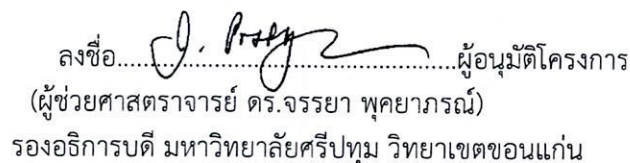 ลงชื่อ....................................................ผู้อนุมัติโครงการ
(ผู้ช่วยศาสตราจารย์ ดร.จรรยา พุคยาภรณ์)
รองอธิการบดี มหาวิทยาลัยศรีปทุม วิทยาเขตขอนแก่น